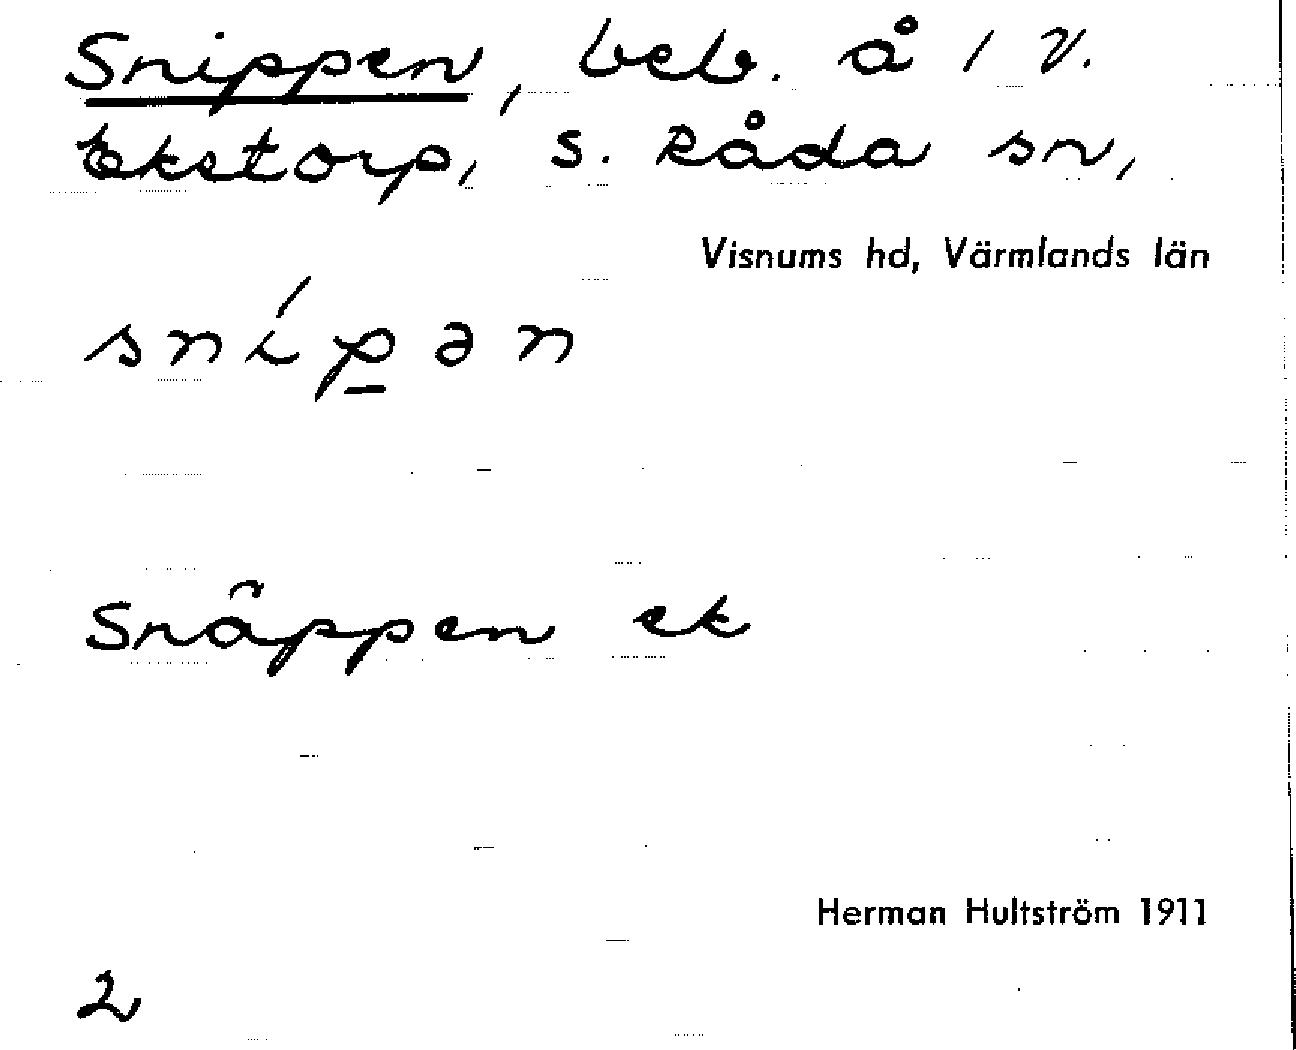 Snippen, beb. å 1 V.
Ekstorp, S. Råda sn,
Visnums hd, Värmlands län
snípən
Snäppen ek
Herman Hultström 1911
2